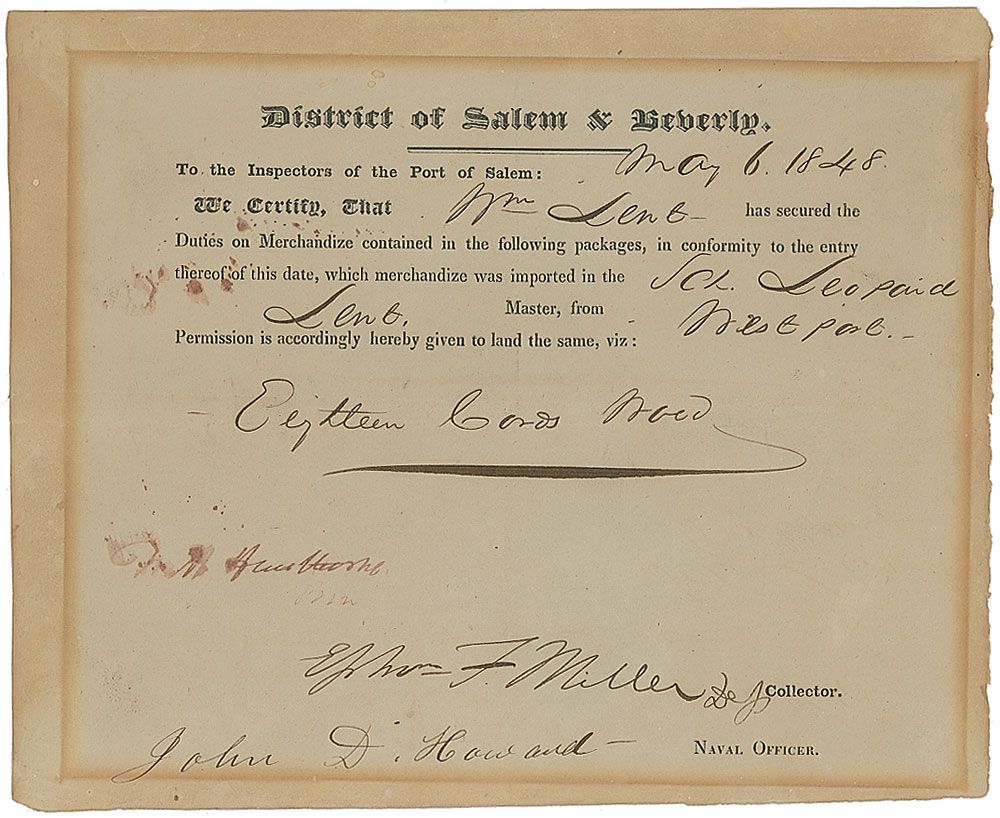 District of Salem & Beverly.
May 6. 1848.
To the Inspectors of the Port of Salem:
We Certify, That Wm Lent has secured the
Duties on Merchandize contained in the following packages, in conformity to the entry
thereof of this date, which merchandize was imported in the Sch. Leopard
Lent. Master, from Westport.
Permission is accordingly hereby given to land the same, viz:
Eighteen Cords Wood
N Hawthorne.
Ephm F. Miller Dep Collector.
John D. Howard NAVAL OFFICER.